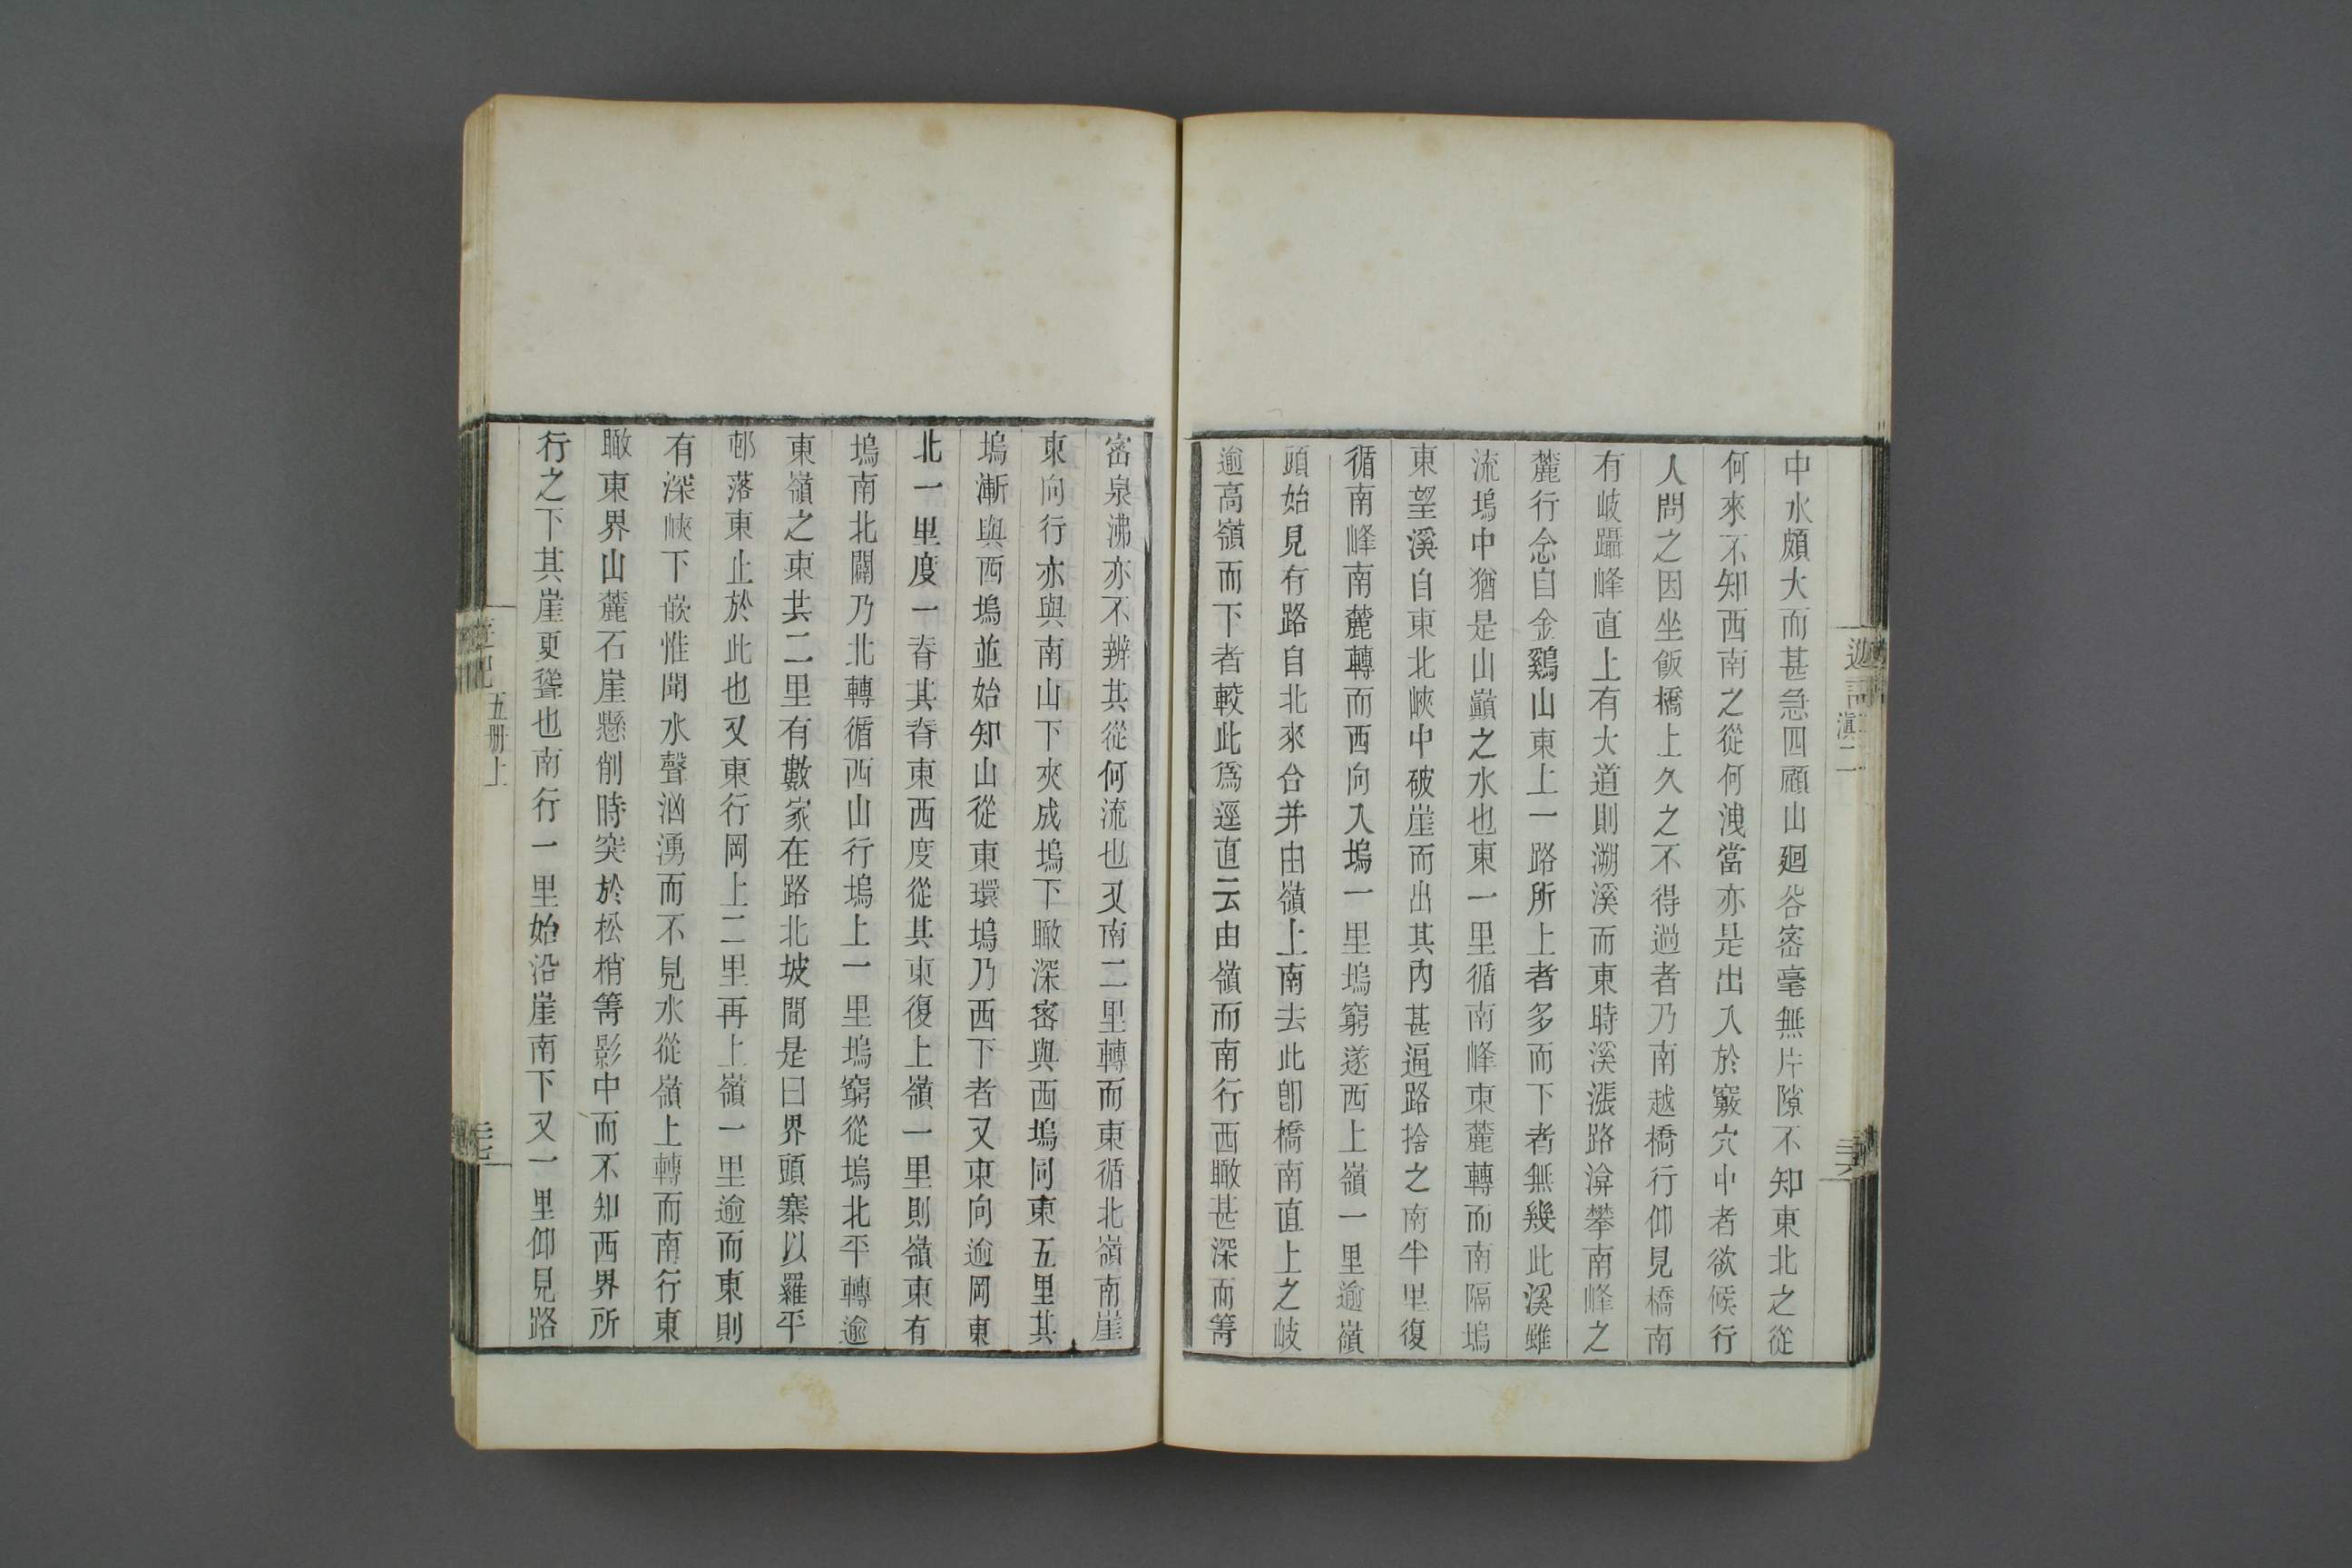 中水頗大而甚急四顧山廻谷密毫無片隙不知東北之從
何來不知西南之從何洩當亦是出入於竅穴中者欲候行
人問之因坐飯橋上久之不得過者乃南越橋行仰見橋南
有岐躡峰直上有大道則溯溪而東時溪漲路渰攀南峰之
麓行念自金鷄山東上一路所上者多而下者無幾此溪雖
流塢中猶是山巔之水也東一里循南峰東麓轉而南隔塢
東望溪自東北峽中破崖而出其內甚逼路捨之南半里復
循南峰南麓轉而西向入塢一里塢窮遂西上嶺一里逾嶺
頭始見有路自北來合并由嶺上南去此卽橋南直上之岐
逾高嶺而下者較此爲逕直云由嶺而南行西瞰甚深而箐
遊記滇二
密泉沸亦不辨其從何流也又南二里轉而東循北嶺南崖
東向行亦與南山下夾成塢下瞰深密與西塢同東五里其
塢漸與西塢並始知山從東環塢乃西下者又東向逾岡東
北一里度一脊其脊東西度從其東復上嶺一里則嶺東有
塢南北闢乃北轉循西山行塢上一里塢窮從塢北平轉逾
東嶺之東共二里有數家在路北坡間是曰界頭寨以羅平
邨落東止於此也又東行岡上二里再上嶺一里逾而東則
有深峽下嵌惟聞水聲洶湧而不見水從嶺上轉而南行東
瞰東界山麓石崖懸削時突於松梢箐影中而不知西界所
行之下其崖更聳也南行一里始沿崖南下又一里仰見路
五册上